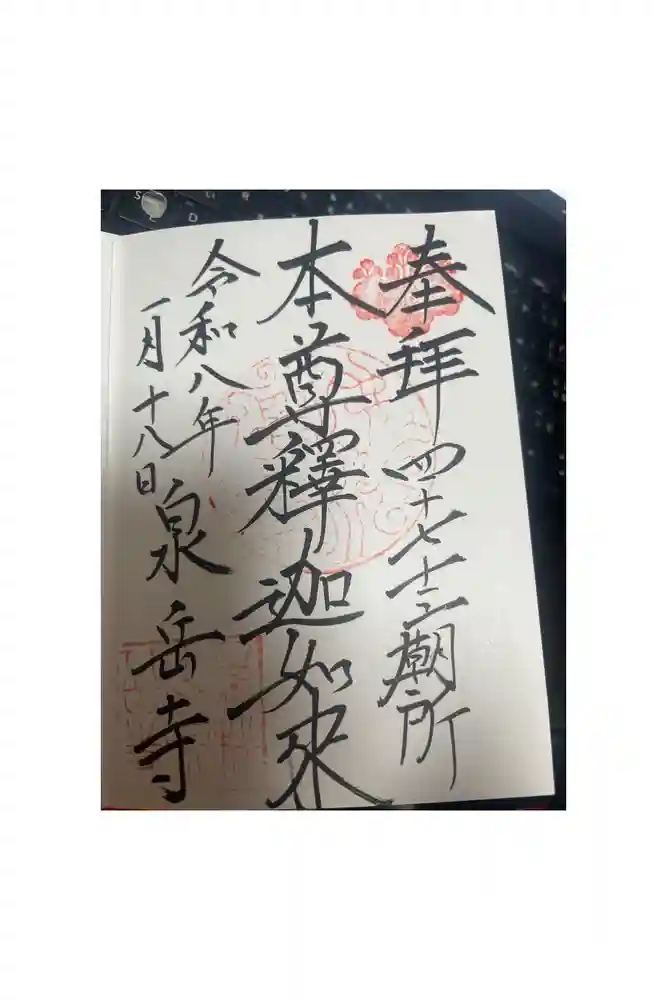 奉拝 四十七士廟所
本尊釋迦如来
令和八年
一月十八日
泉岳寺